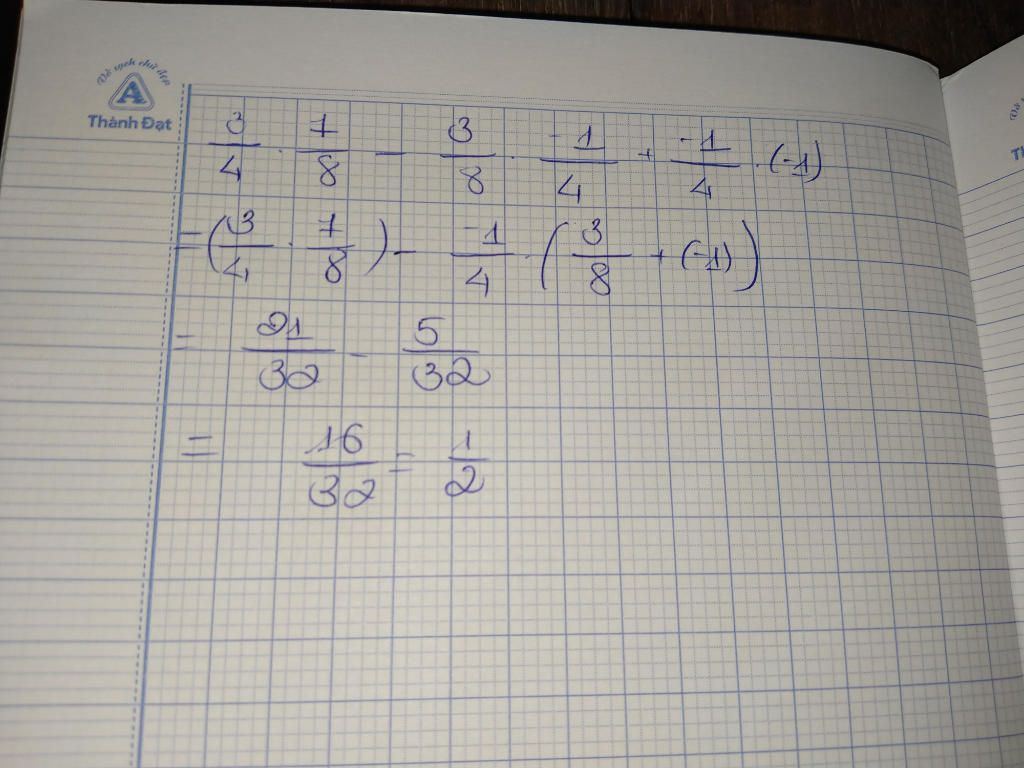 Vở sạch chữ đẹp
A
Thành Đạt
3/4 . 7/8 - 3/8 . -1/4 + -1/4 . (-1)
= (3/4 . 7/8) - -1/4 . (3/8 + (-1))
= 21/32 - 5/32
= 16/32 = 1/2